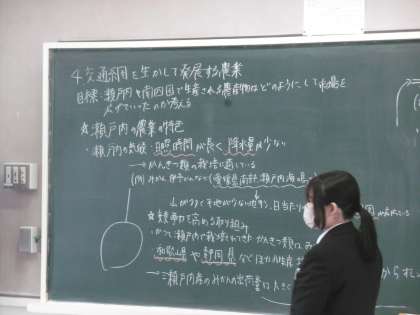 4 交通網を生かして発展する農業
目標:瀬戸内や南四国で生産される農産物はどのようにして市場を
広げていったのか考える
☆瀬戸内の農業の特色
・瀬戸内の気候:日照時間が長く、降水量が少ない
→かんきつ類の栽培に適している
(例)みかん、伊予かんなど(愛媛県南部、瀬戸内海の
山がちで平地が少ない地形、日当たり
☆競争で高める取り組み
・かつて瀬戸内で栽培されてきたかんきつ類は
和歌山県や静岡県などほかの生産
→瀬戸内産のみかんの出荷量は大きく